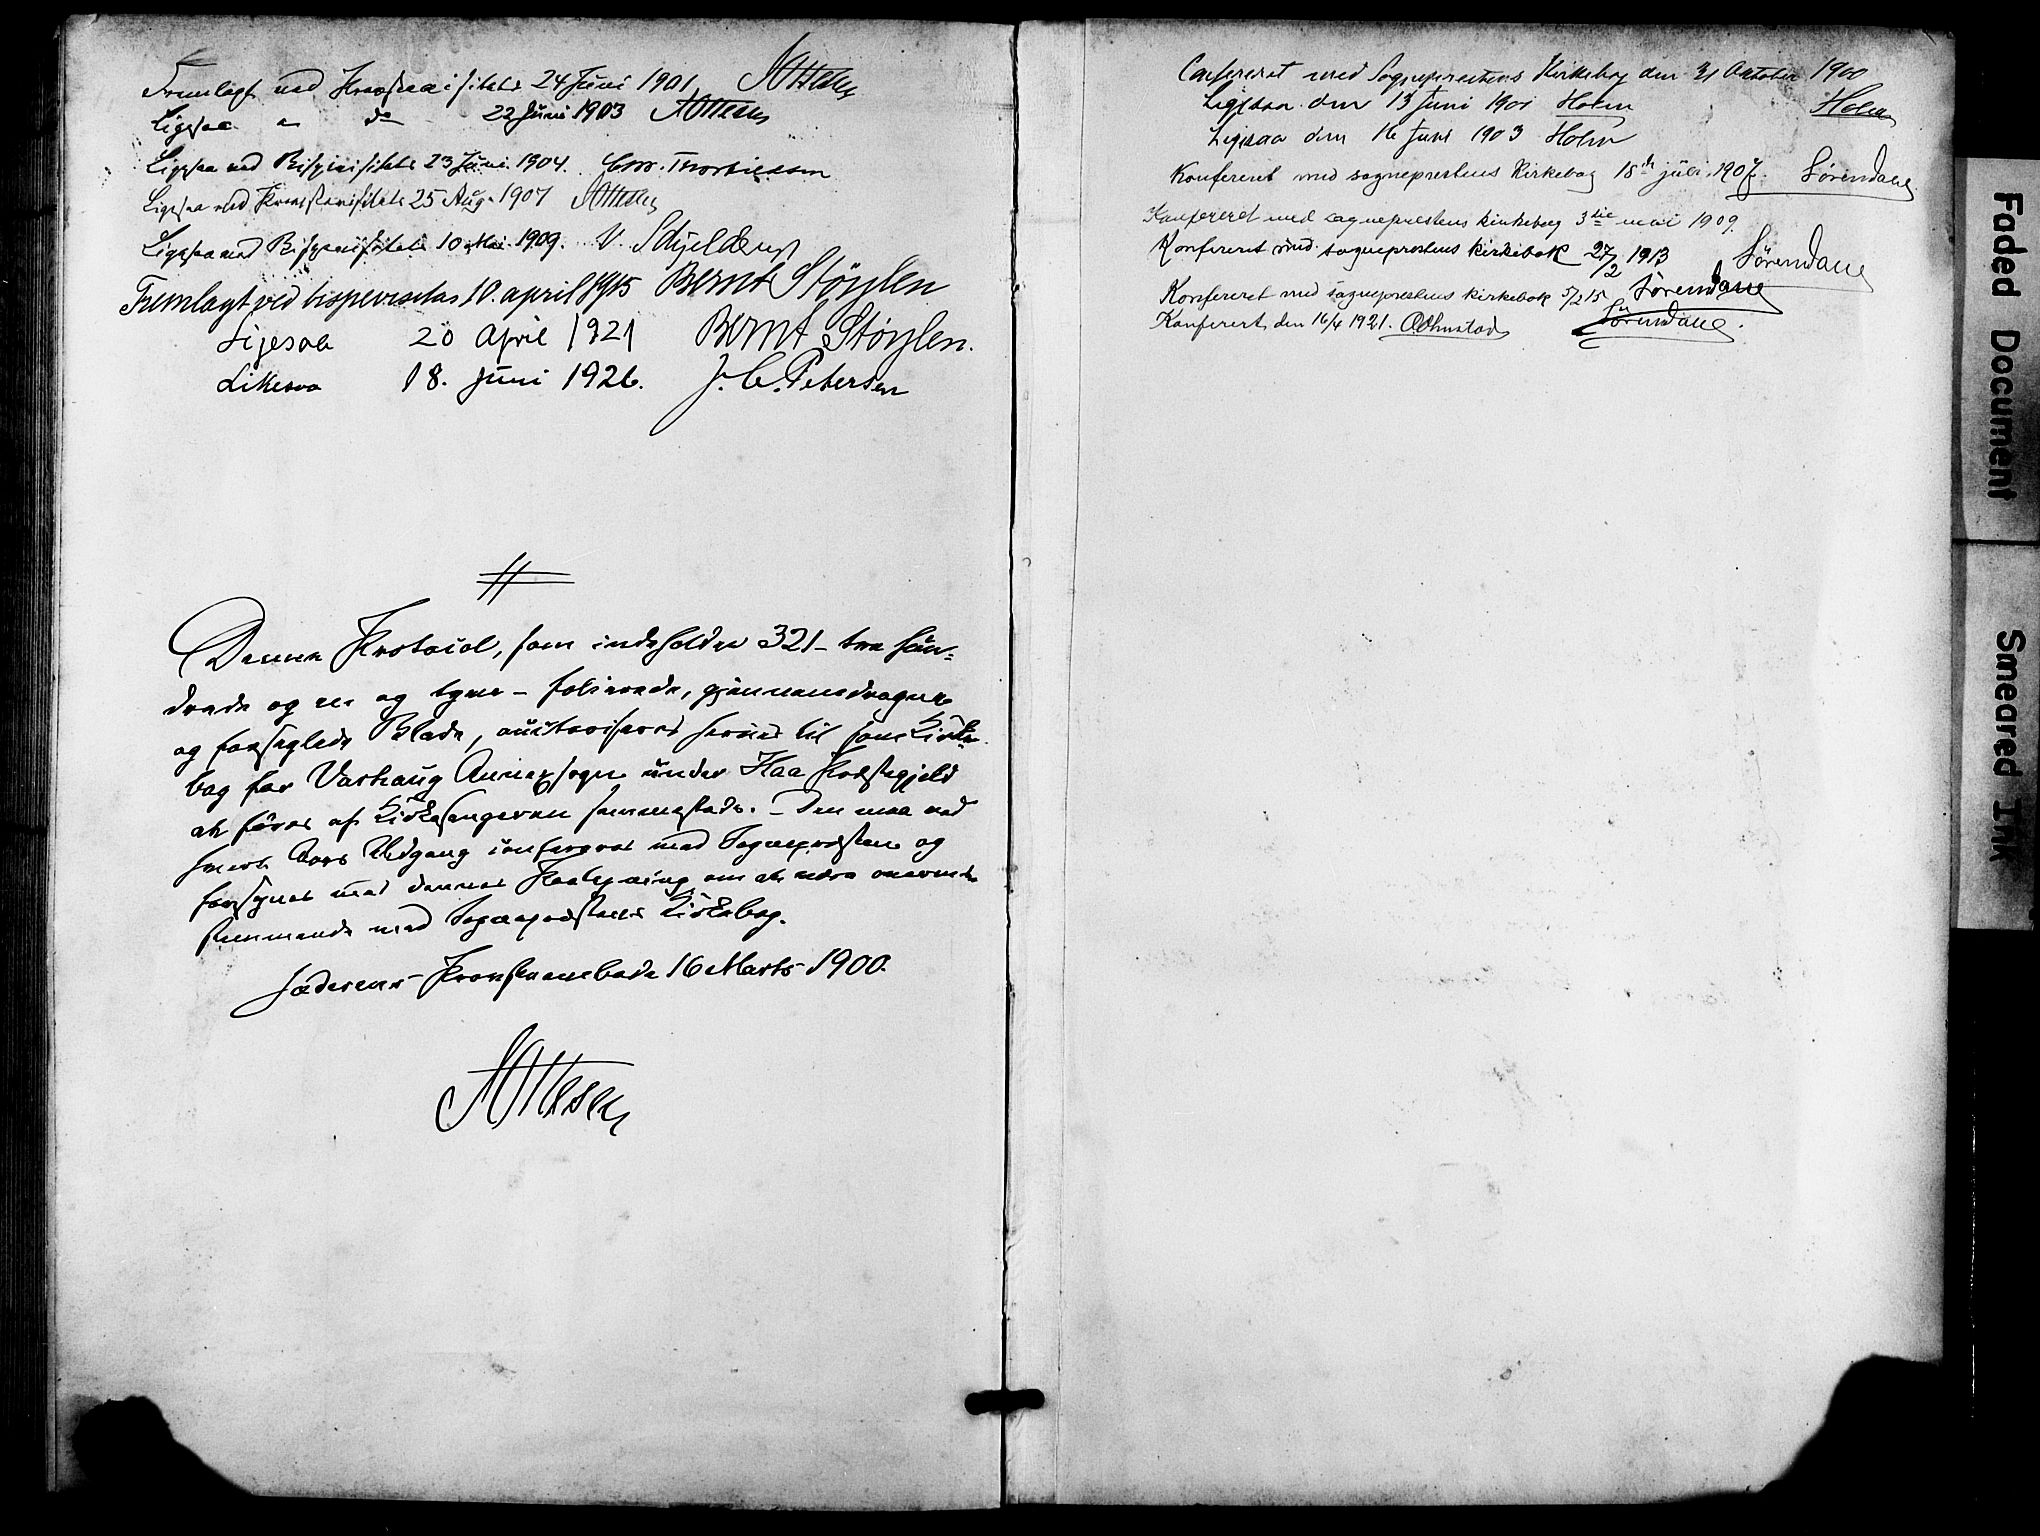 Fremlagt ved Provstevisitats 24 Juni 1901 AOttesen
Ligesaa " do 22 Juni 1903 AOttesen
Ligesaa ved Bispevisitats 23 Juni 1904. Chr. Thorkildsen
Ligesaa ved Provstevisitats 25 Aug. 1907 AOttesen
Ligesaa ved Bispevisitats 10 Mai 1909. V. Schjelderup
Fremlagt ved bispevisitas 10. april 1915 Bernt Støylen
Ligesaa 20 April 1921 Bernt Støylen.
Likesaa 18. juni 1926. J. C. Petersen
Denne Protocol, som indeholder 321 - tre hun-
drede og en og tyve - folierede, gjennemdragne
og forseglede Blade, auctoriseres herved til som Kirke-
bog for Varhaug Annexsogn under Haa Præstegjeld
at føres af Kirkesangeren sammesteds. - Den maa ved
hvert Aars Udgang confereres med Sognepræstens og
forsynes med dennes Paategning om at være overens-
stemmende med Sognepræstens Kirkebog.
Jæderens Provstembede 16 Marts 1900.
AOttesen
Confereret med Sogneprestens Kirkebog den 31 Oktober 1900
Holm
Ligesaa den 13 Juni 1901 Holm
Ligesaa den 16 Juni 1903 Holm
Konfereret med sogneprestens Kirkebog 18de juli 1907. Sørendane
Konfereret med sogneprestens kirkebog 3die mai 1909.
Sørendane
Konfereret med sogneprestens kirkebok 27/2 1913
Konfereret med sogneprestens kirkebok 5/2 15 Sørendane
Sørendane.
Konferert den 16/4 1921.
Faded Document
Smeared Ink